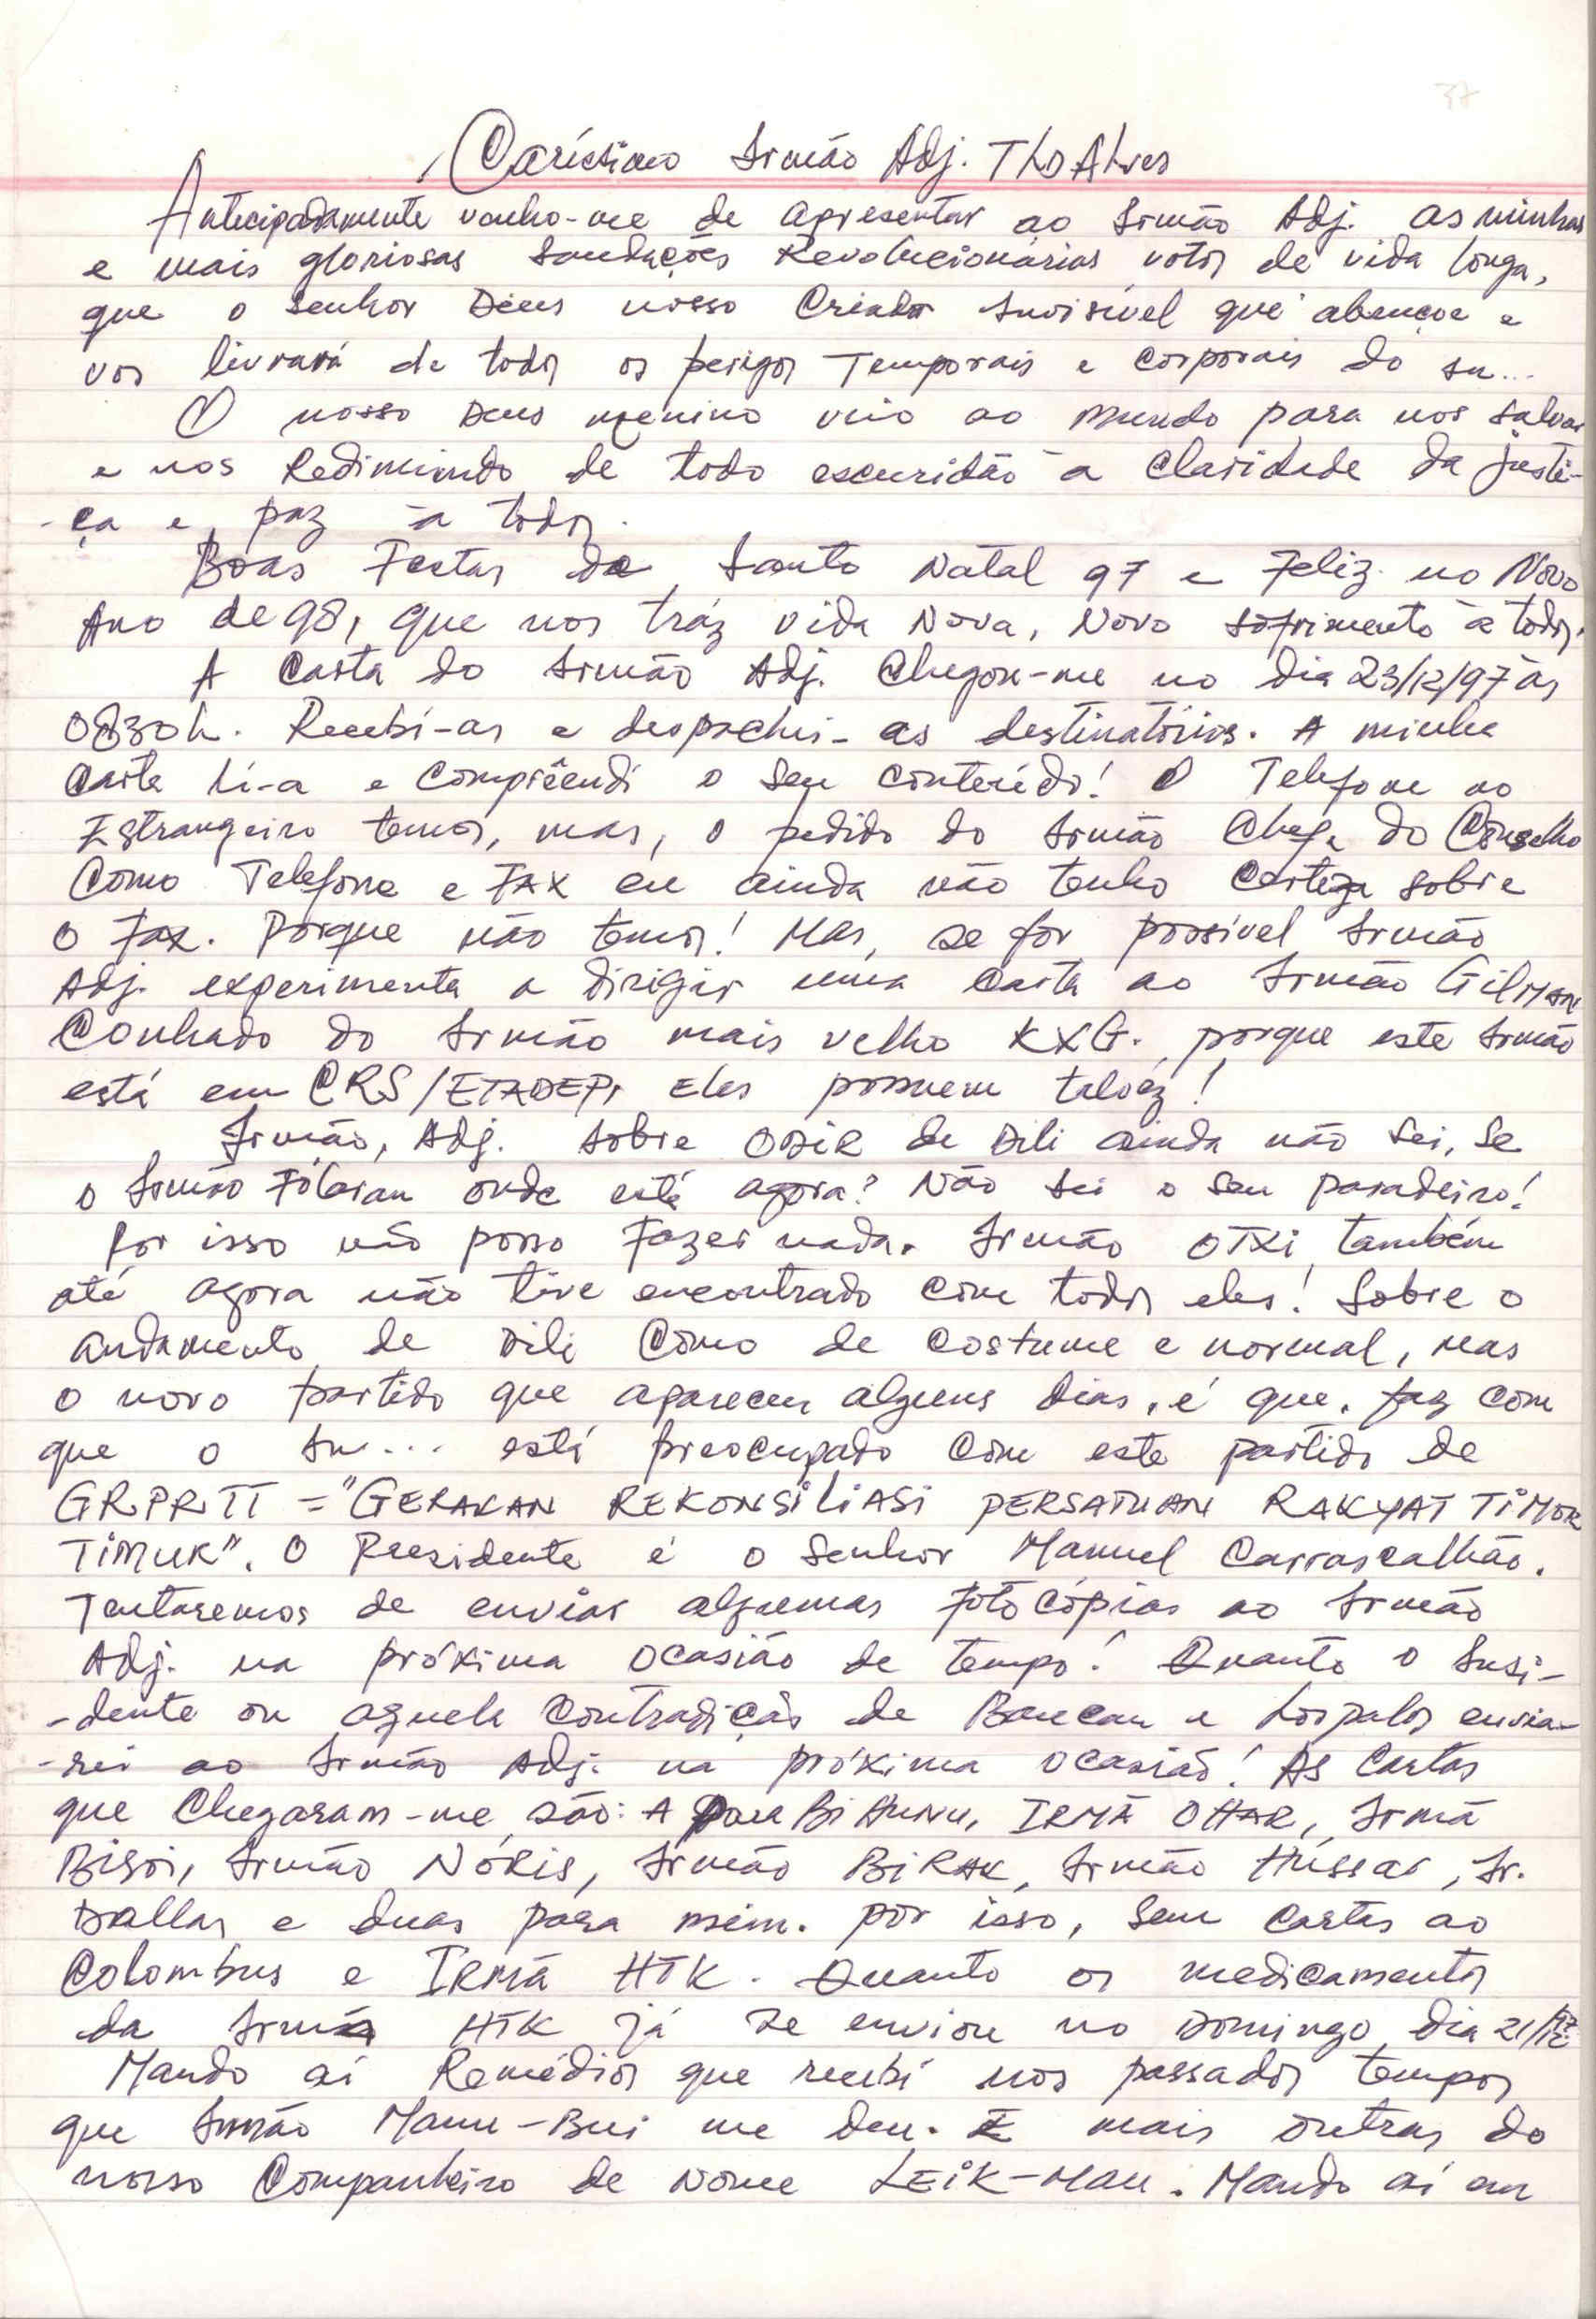 37
Caríssimo Irmão Adj.
Antecipadamente venho-me de apresentar ao Irmão Adj. as minhas
e mais gloriosas Saudações Revolucionárias votos de vida longa,
que o senhor Deus nosso Criador Invisível que abençoe e
vos livrará de todos os perigos Temporais e corporais do in...
O nosso Deus menino veio ao mundo para nos salvar
e nos Redimindo de todo escuridão à claridade da justi-
-ça e paz à todos.
Boas Festas de Santo Natal 97 e Feliz no Novo
Ano de 98, que nos tráz vida Nova, Novo sofrimento à todos.
A Carta do Irmão Adj. Chegou-me no dia 23/12/97 às
0830h. Recebí-as e despachei-as destinatórios. A minha
Carta lí-a e Compreêndi o seu conteúdo! O Telefone no
Estrangeiro temos, mas, o pedido do Irmão Chefe do Conselho
Como Telefone e FAX eu ainda não tenho Certeza sobre
O Fax. Porque não temos! Mas, se fôr possível Irmão
Adj. experimenta a dirigir uma carta ao Irmão Gilman
Conhado do Irmão mais velho KXG. porque este Irmão
está em CRS/ETADEP, Eles possuem talvéz!
Irmão, Adj. sobre ODIR de Dili ainda não sei, se
o Irmão Fólaran onde está agora? Não sei o seu paradeiro!
Por isso não posso Fazer nada. Irmão OTKI também
até agora não tive encontrado com todos eles! Sobre o
andamento de Dili Como de costume e normal, mas
o novo partido que apareceu alguns dias, é que, faz com
que o in... está preocupado com este partido de
GRPRTT = "GERAKAN REKONSILIASI PERSATUAN RAKYAT TIMOR
TIMUR". O Presidente é o Senhor Manuel Carrascalhão.
Tentaremos de enviar algumas Fotocópias ao Irmão
Adj. na próxima ocasião de tempo! Quanto o Insi-
-dente ou aquela contradição de Baucau e Lospalos envia-
-rei ao Irmão Adj. na próxima ocasião! As Cartas
que Chegaram-me são: A para Bi Hunu, IRMÃ OHAR, Irmã
BiSoi, Irmão NÓRIS, Irmão BiRAK, Irmão Hússar, Ir.
Dallas e duas para mim. por isso, sem cartas ao
Colombus e IRMÃ HTK. Quanto os medicamentos
da Irmã HTK já se enviou no Domingo dia 21/12
Mando aí Remédios que recebí nos passados tempos
que Irmão Maun-Bui me deu. E mais outras do
nosso Companheiro de Nome LEIK-Mau. Mando aí em